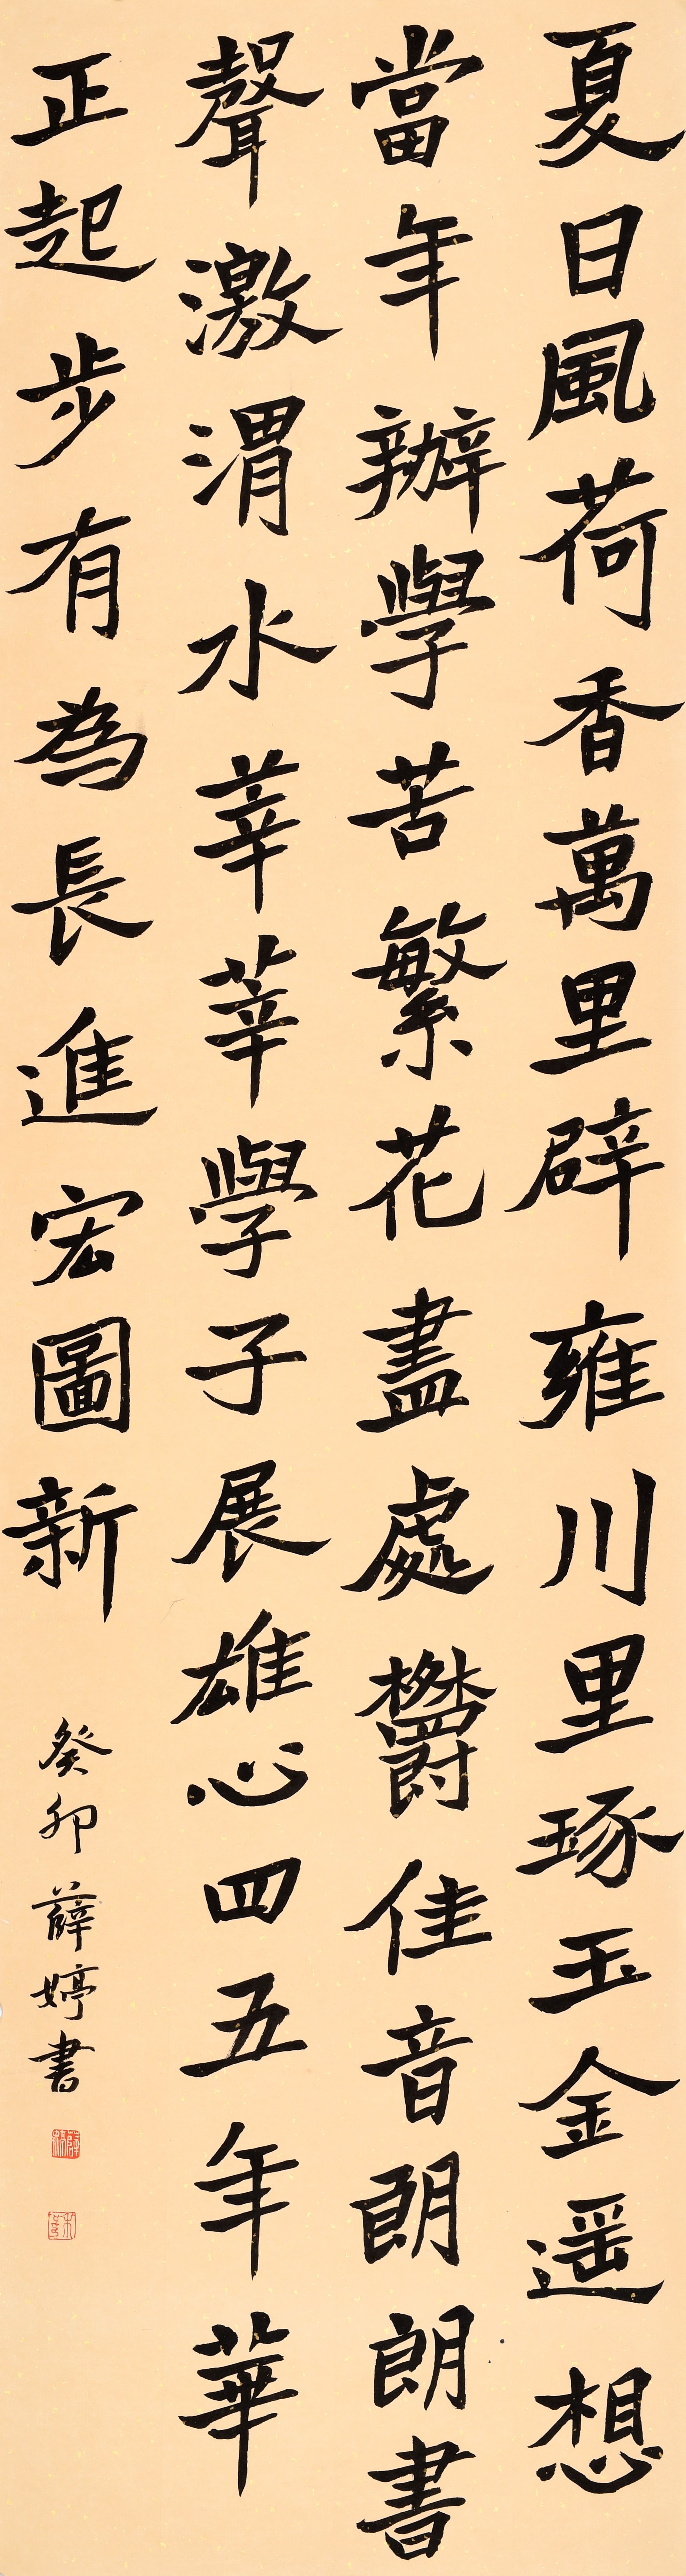 夏日風荷香萬里辟雍川里琢玉金遥想
當年辦學苦繁花盡處欝佳音朗朗書
聲激渭水莘莘學子展雄心四五年華
正起步有為長進宏圖新
癸卯薛婷書